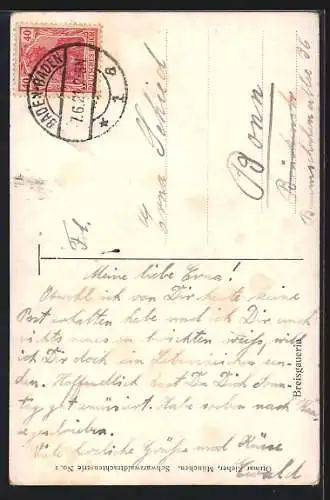 40 40
DEUTSCHES REICH
BADEN-BADEN
7.6.2
* 1 a
Frl.
Erna Schied
Bonn
36
Meine liebe Erna!
Obwohl ich von Dir heute keine
Post erhalten habe und ich Dir auch
nichts neues zu berichten weiß, will
ich Dir doch ein Lebenszeichen sen-
den. Hoffentlich hast Du Dich Sonn-
tag gut amüsiert. Habe soeben nach
geschrieben.
Viele herzliche Grüße und Küsse
Ewald
Breisgauerin
Ottmar Zieher, München. Schwarzwaldtrachtenserie No. 1